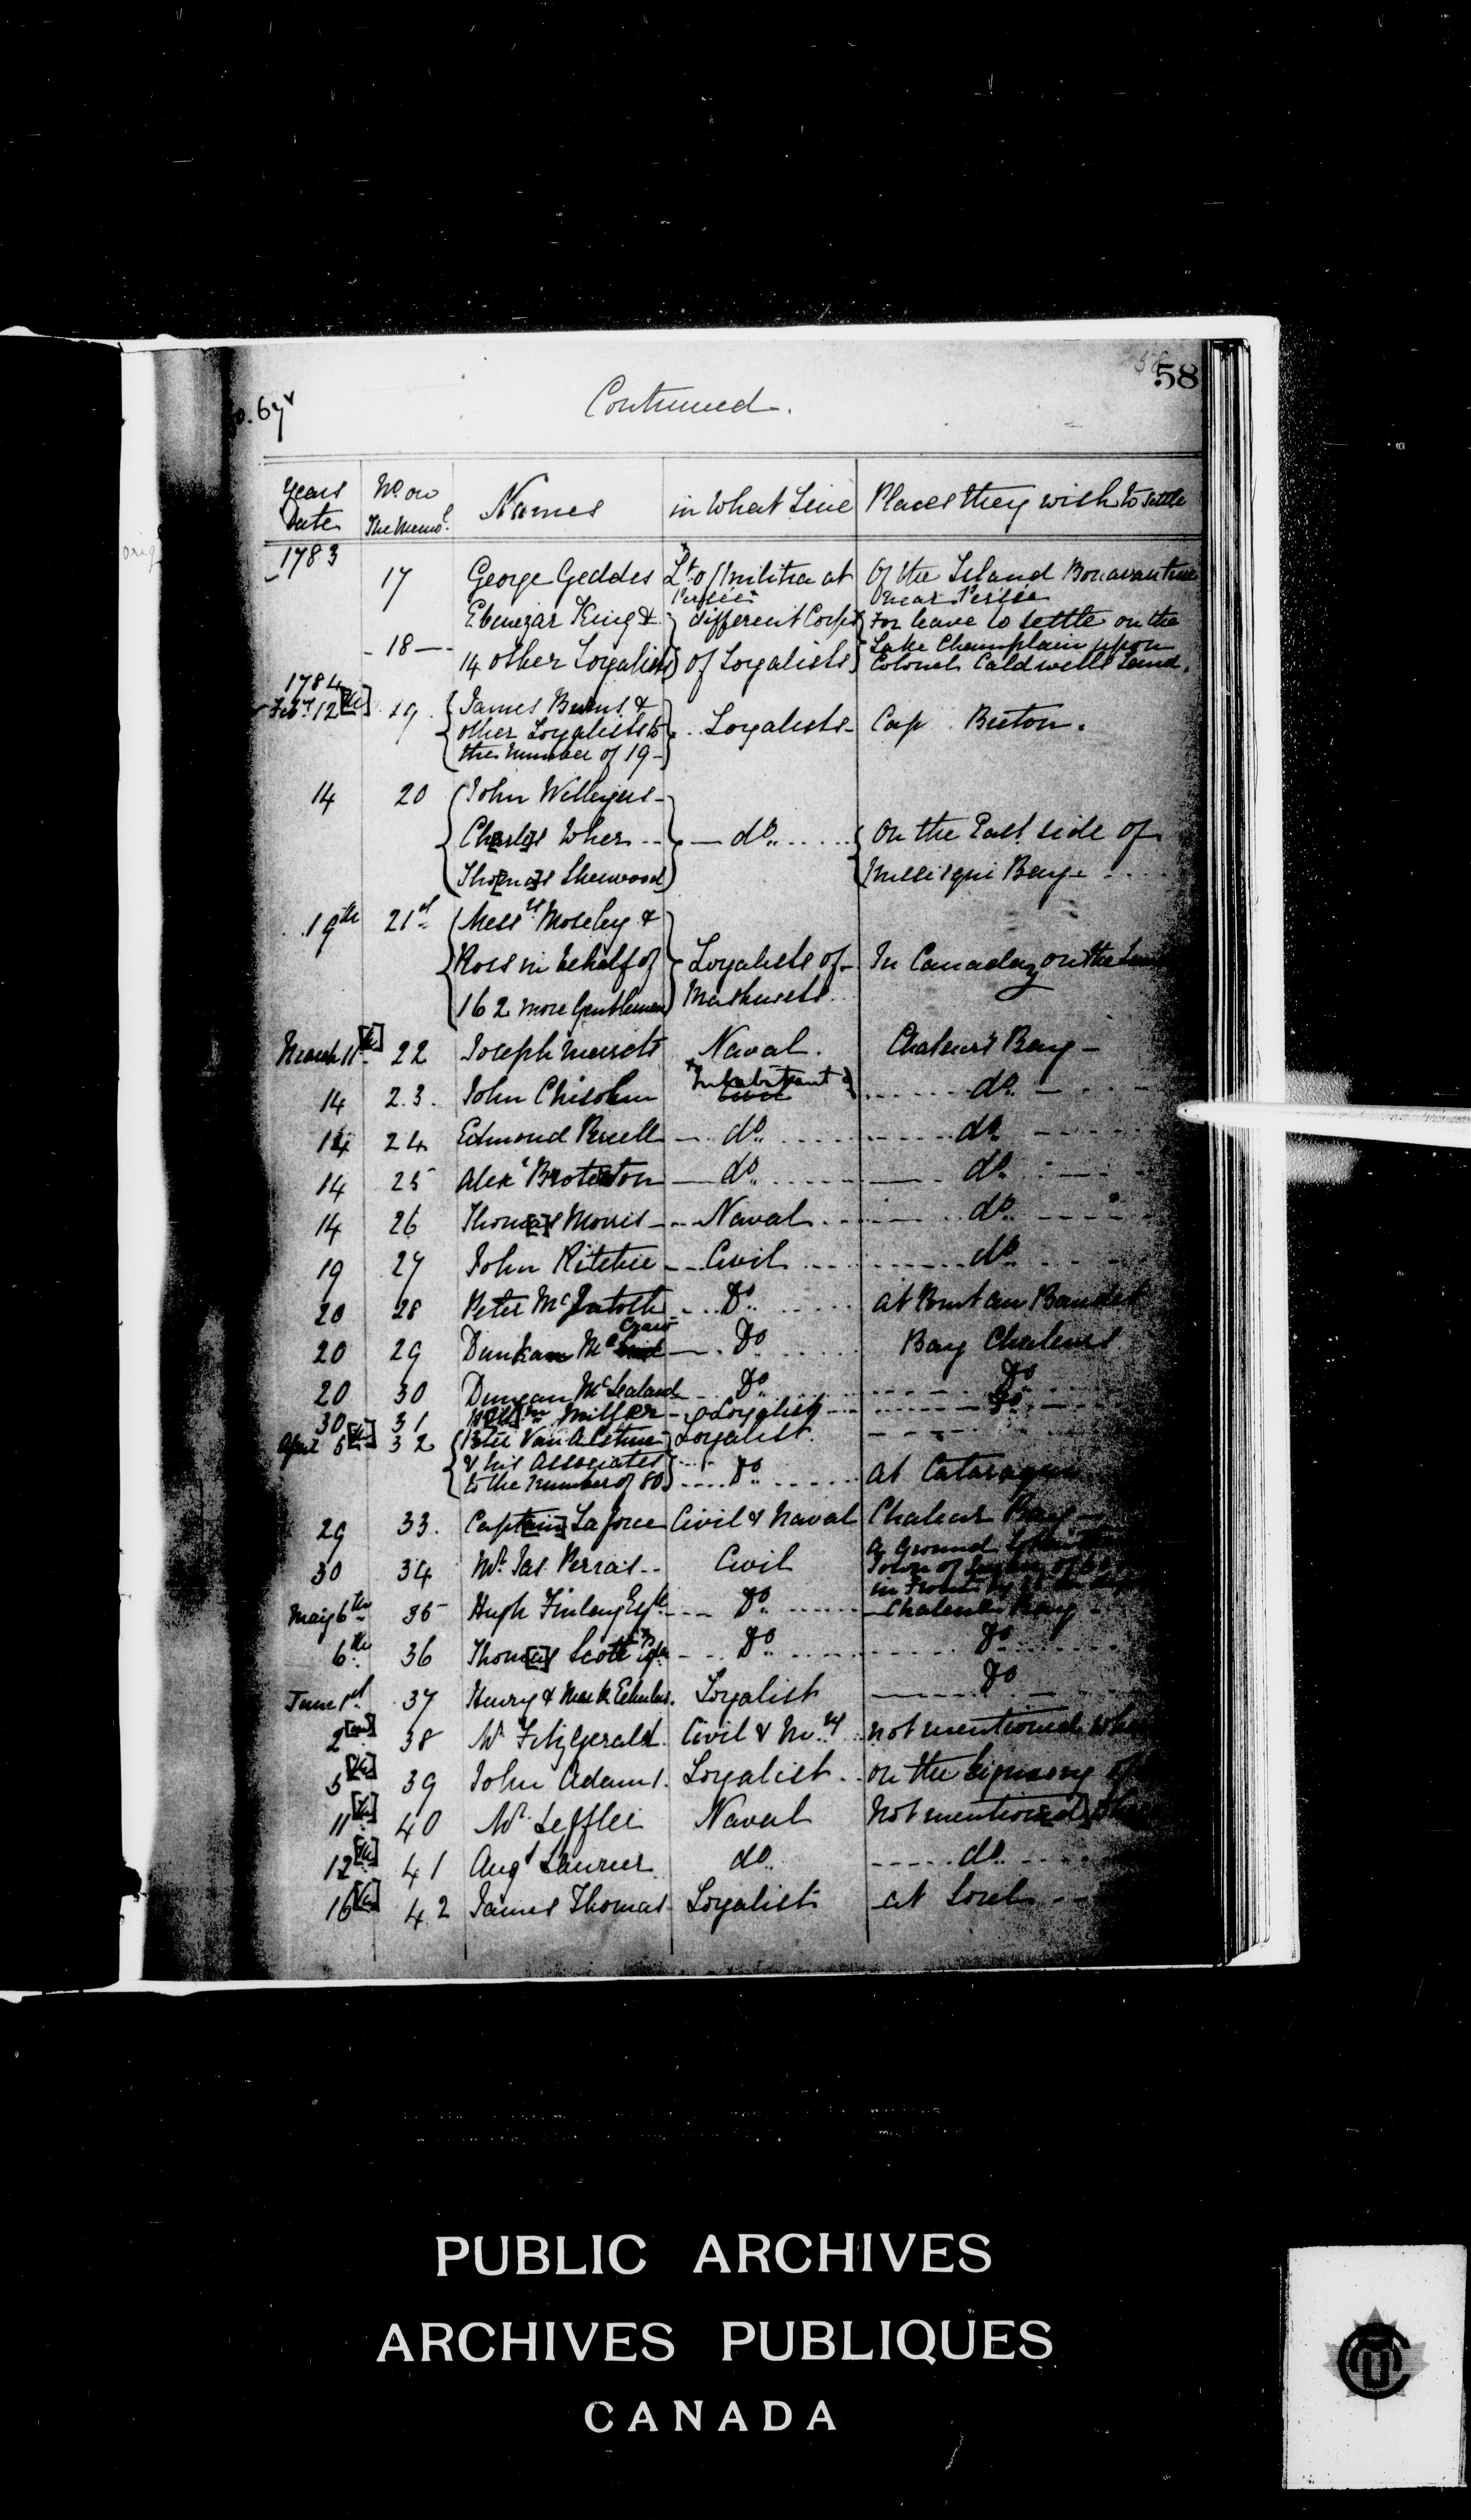 58
fo. 67v
Continued.
Years Date No. on The Meml. Names in What Line Places they wish to settle
1783
17 George Geddes Lt. of Militia at Persée Of the Island Bonavanture near Persée
18 Ebenezar King & 14 other Loyalists different Corps of Loyalists For leave to settle on the Lake Champlain upon Colonel Caldwells Land.
1784
Feby. 12[th] 19 James Burns & other Loyalists to the Number of 19 Loyalists Cap Breton.
14 20 John
Charles Wher
Thomas Sherwood do. On the East side of Missisqui Bay
19th 21st Messrs. Moseley &
Ross in behalf of
162 more Gentlemen Loyalists of Mashusets In Canada, on the
March 11[th] 22 Joseph Naval. Chaleurs Bay
14 23. John Chisolm Inhabitant do.
14 24 Edmond do. do.
14 25 Alexr. do. do.
14 26 Thom[as] Morris Naval do.
19 27 John Ritchie Civil do.
20 28 Peter McIntosh Do. at
20 29 Dunkan Mc Craw Do. Bay Chaleurs
20 30 Duncan Do. Do.
30 31 Miller Loyalist Do.
April 5[th] 32 Peter Van Alstine Loyalist.
& his Associates
to the Number of 80 Do. at
29 33. Capt[ain] LaForce Civil & Naval Chaleur Bay
30 34 Mr. Jas. Perras Civil a Ground
Town of
in Front
May 6th 35 Hugh Finlay Esqr. Do. Chaleur Bay
6th 36 Thom[as] Scott Do. Do.
June 1st 37 Henry & Loyalist Do.
2[nd] 38 Mr. Fitzgerald. Civil & not mentioned
5[th] 39 John Adams. Loyalist on the
11[th] 40 Mr. Naval Not mentioned
12[th] 41 Augt. do. do.
16[th] 42 James Thomas Loyalist at Sorel
PUBLIC ARCHIVES
ARCHIVES PUBLIQUES
CANADA